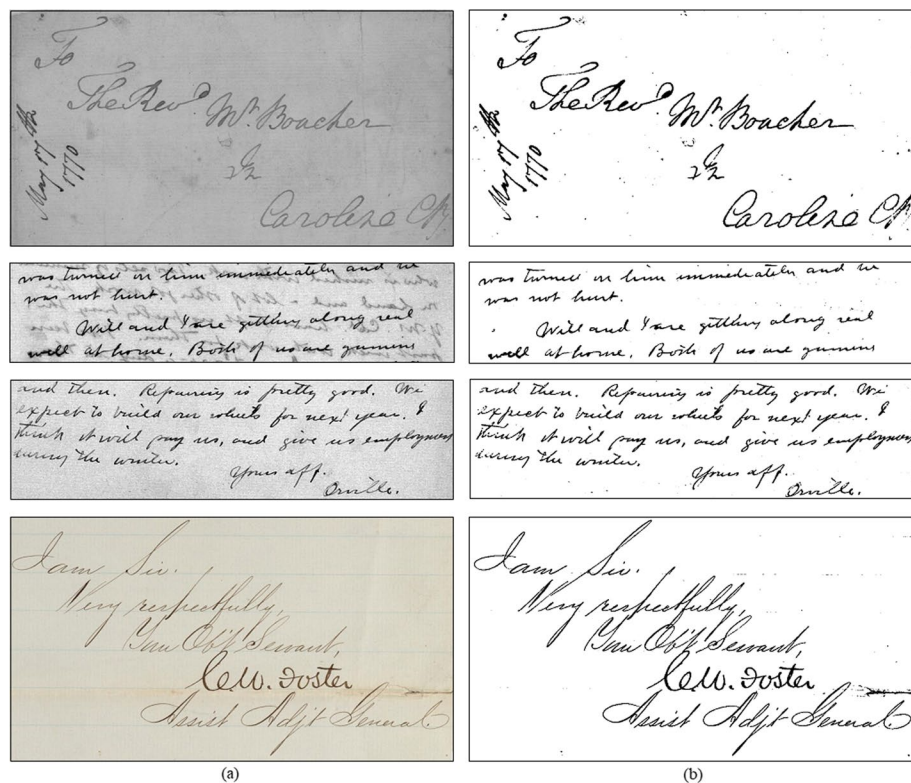 To
The Revd
Mr. Boacher
In
Caroline C
1770
was turned on him immediately and he
was not hurt.
Will and I are getting along real
well at home. Both of us are gunning
and then. Repairing is pretty good. We
expect to build our wheels for next year. I
think it will pay us, and give us employment
during the winter.
Yours aff.
Orville.
I am Sir.
Very respectfully,
Your Obt Servant,
C.W. Foster
Assist Adjt General
(a)
To
The Revd
Mr. Boacher
In
Caroline C
1770
was turned on him immediately and he
was not hurt.
Will and I are getting along real
well at home. Both of us are gunning
and then. Repairing is pretty good. We
expect to build our wheels for next year. I
think it will pay us, and give us employment
during the winter.
Yours aff.
Orville.
I am Sir.
Very respectfully,
Your Obt Servant,
C.W. Foster
Assist Adjt General
(b)